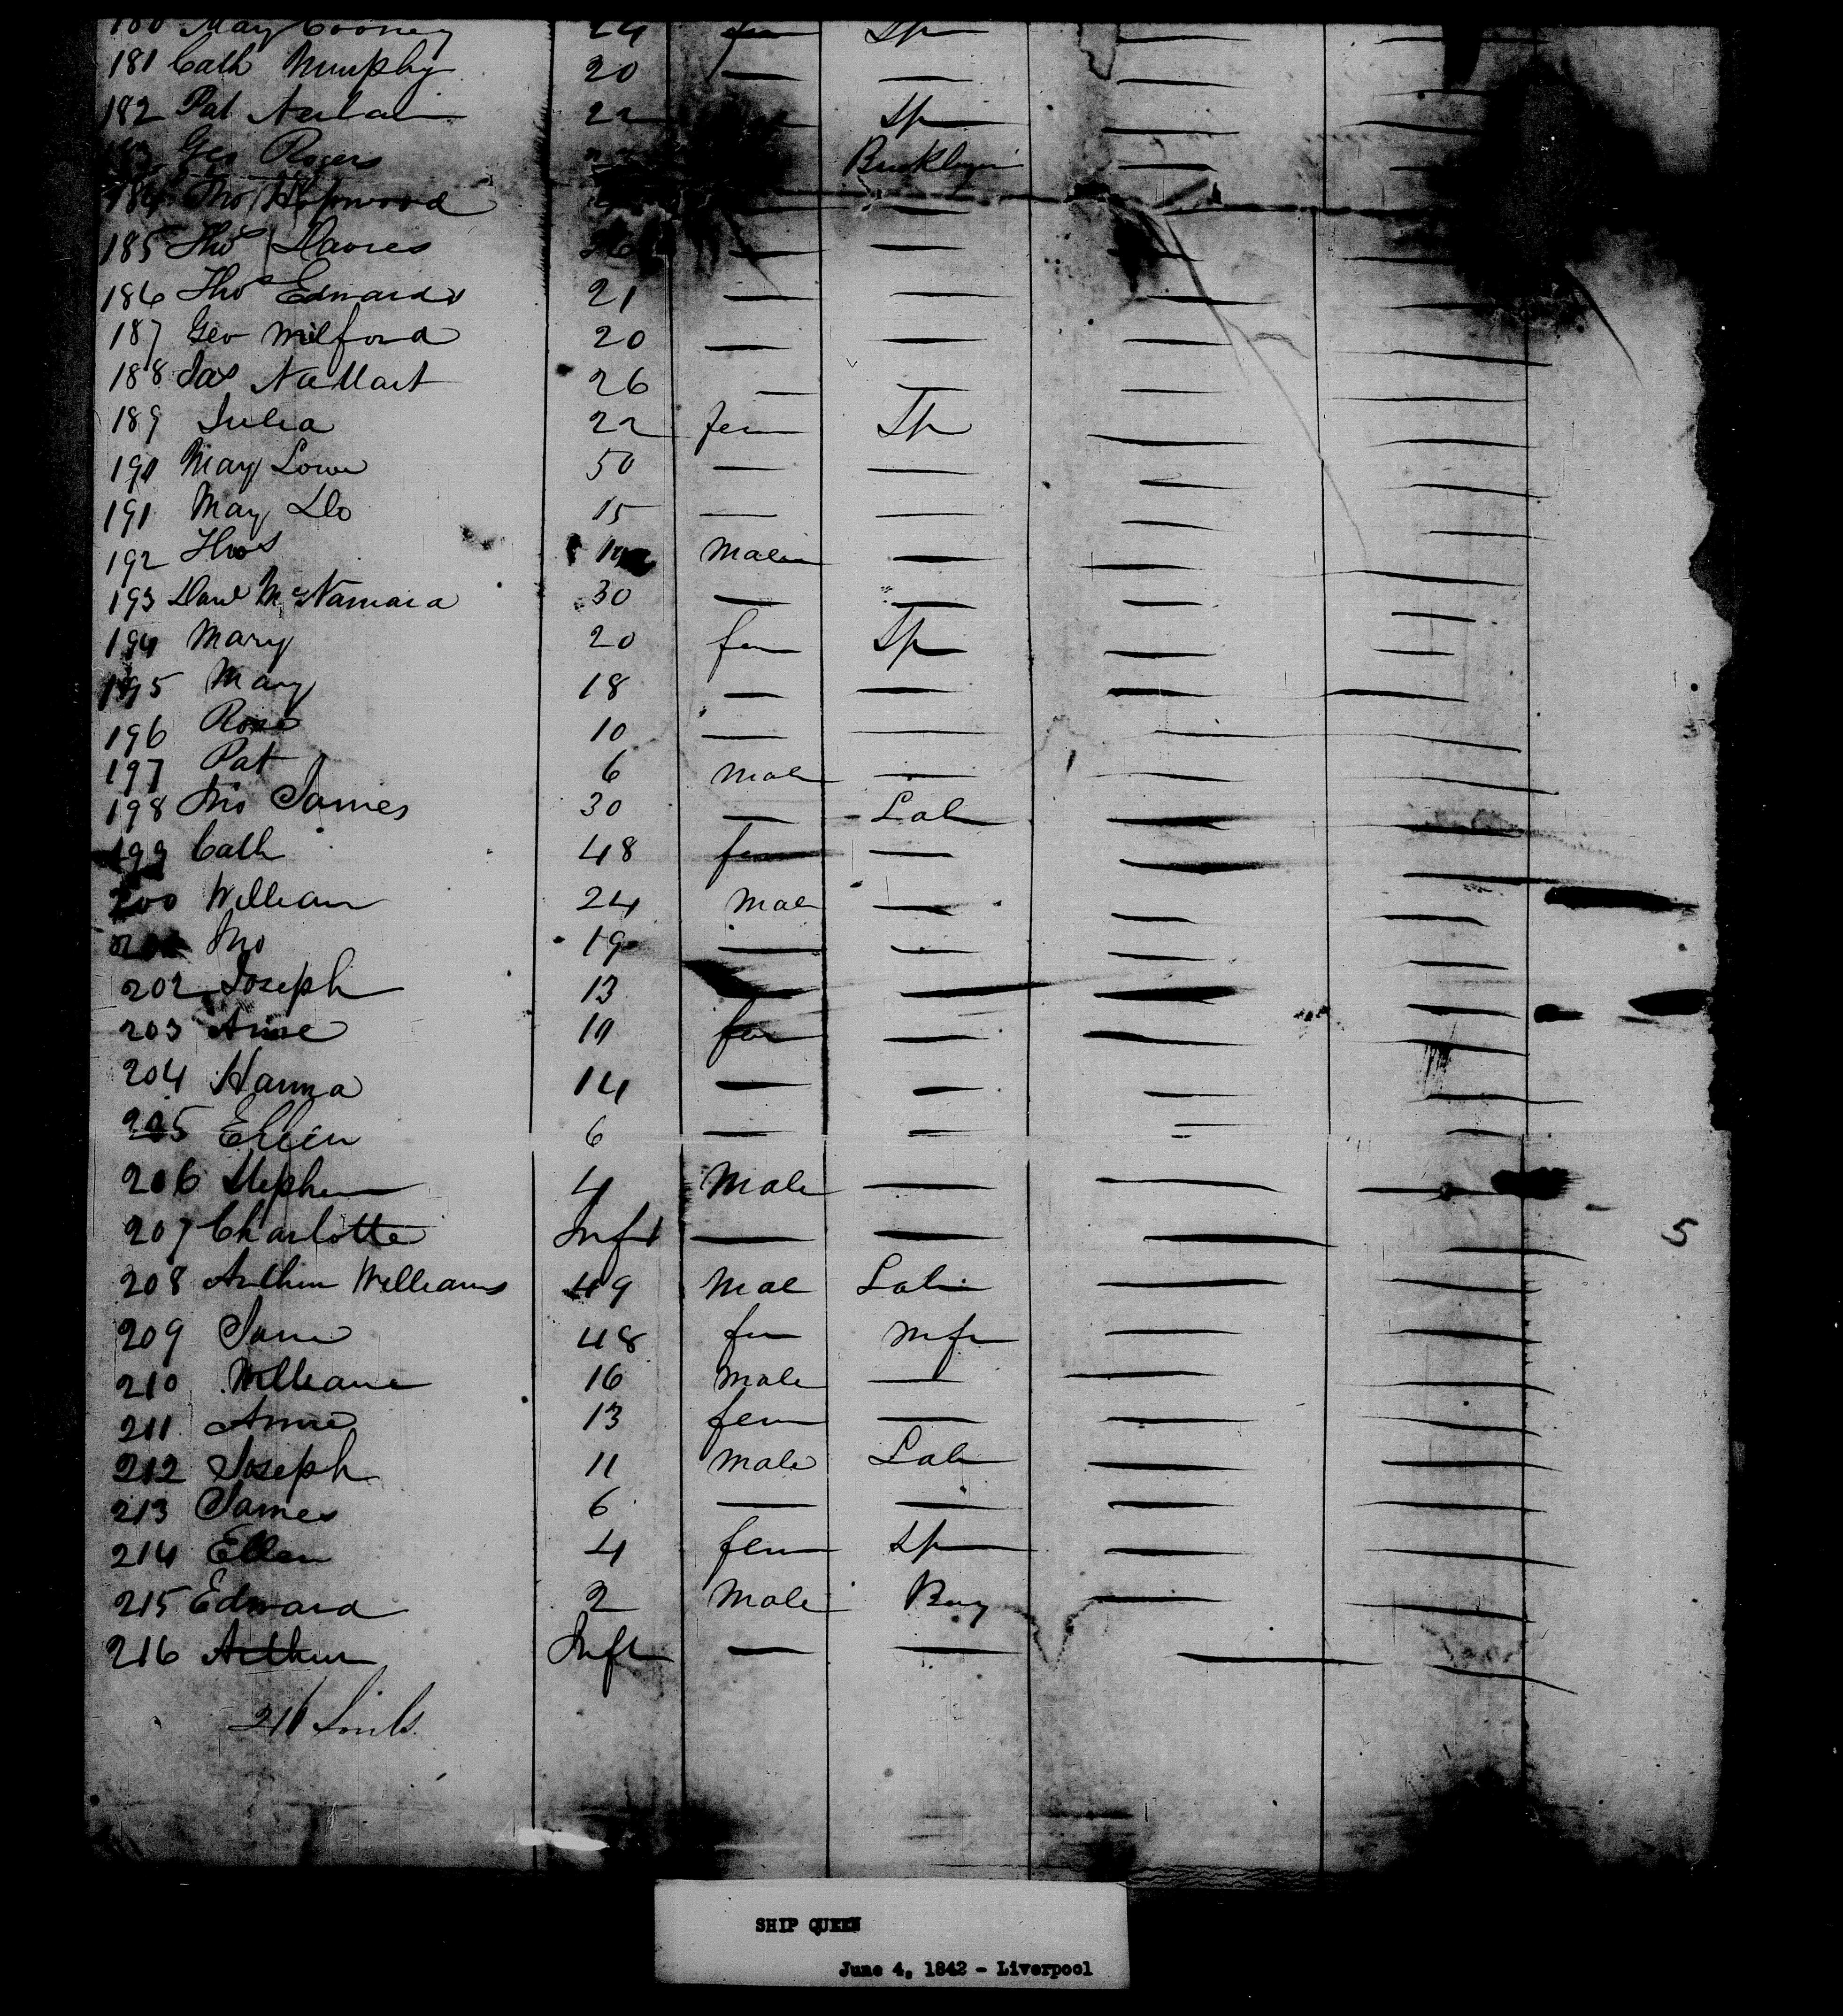 180 May Cooney 24 fem Sp
181 Cath Murphy 20 — —
182 Pat 22 Sp
183 Geo Rogers Bricklayer
184 Jno Hopwood —
185 Thos Davies 26 — —
186 Thos Edwards 21 — —
187 Geo Milford 20 — —
188 Jas 26 — —
189 Julia 22 fem Sp
190 Mary Lowe 50 — —
191 May Do 15 — —
192 Thos Male —
193 Danl McNamara 30 — —
194 Mary 20 fem Sp
195 Mary 18 — —
196 Rose 10 — —
197 Pat 6 Male —
198 Jno James 30 — Lab
199 Cath 48 fem —
200 William 24 Male —
201 Jno 19 — —
202 Joseph 13 — —
203 Anne 10 fem —
204 Hanna 14 — —
205 Ellen 6 — —
206 Stephen 4 Male —
207 Charlotte Inft — — 5
208 Arthur Williams 49 Mal Lab
209 Jane 48 fem
210 William 16 Male —
211 Anne 13 fem —
212 Joseph 11 Male Lab
213 James 6 — —
214 Ellen 4 fem Sp
215 Edward 2 Male Boy
216 Arthur Inft — —
216 Souls.
SHIP QUEEN
June 4, 1842 - Liverpool